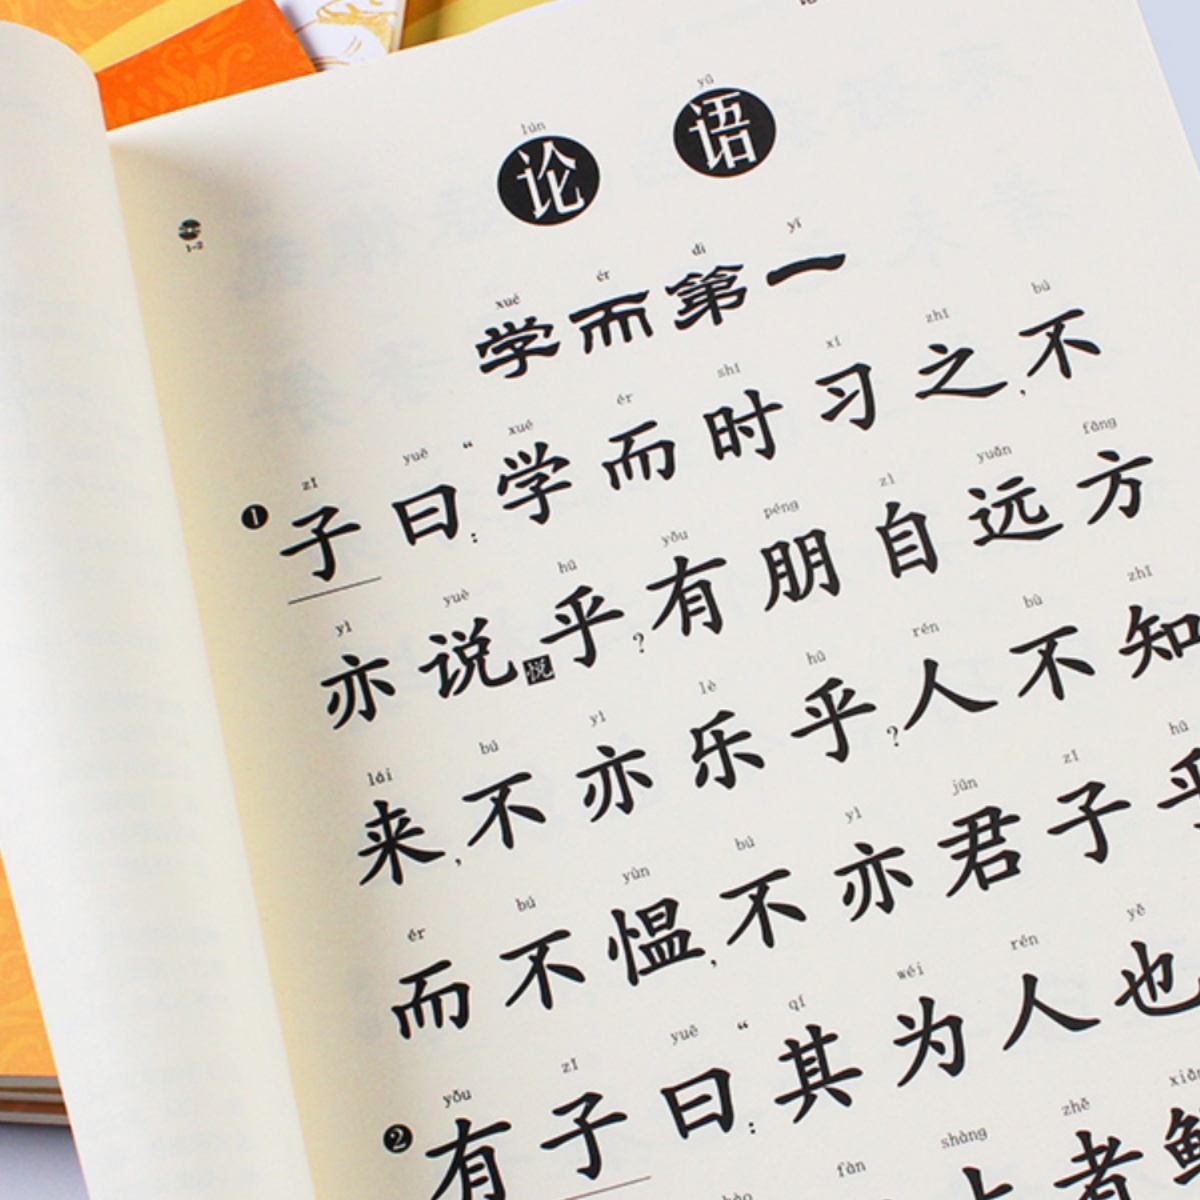 lún yǔ
论 语
1-2
xué ér dì yī
学而第一
zǐ yuē “ xué ér shí xí zhī bù
❶ 子曰:“学而时习之,不
yì yuè hū yǒu péng zì yuǎn fāng
亦说悦乎?有朋自远方
lái bú yì lè hū rén bù zhī
来,不亦乐乎?人不知
ér bú yùn bú yì jūn zǐ hū
而不愠,不亦君子乎
yǒu zǐ yuē “ qí wéi rén yě
❷ 有子曰:“其为人也
hào fàn shàng zhě xiǎn
上者鲜